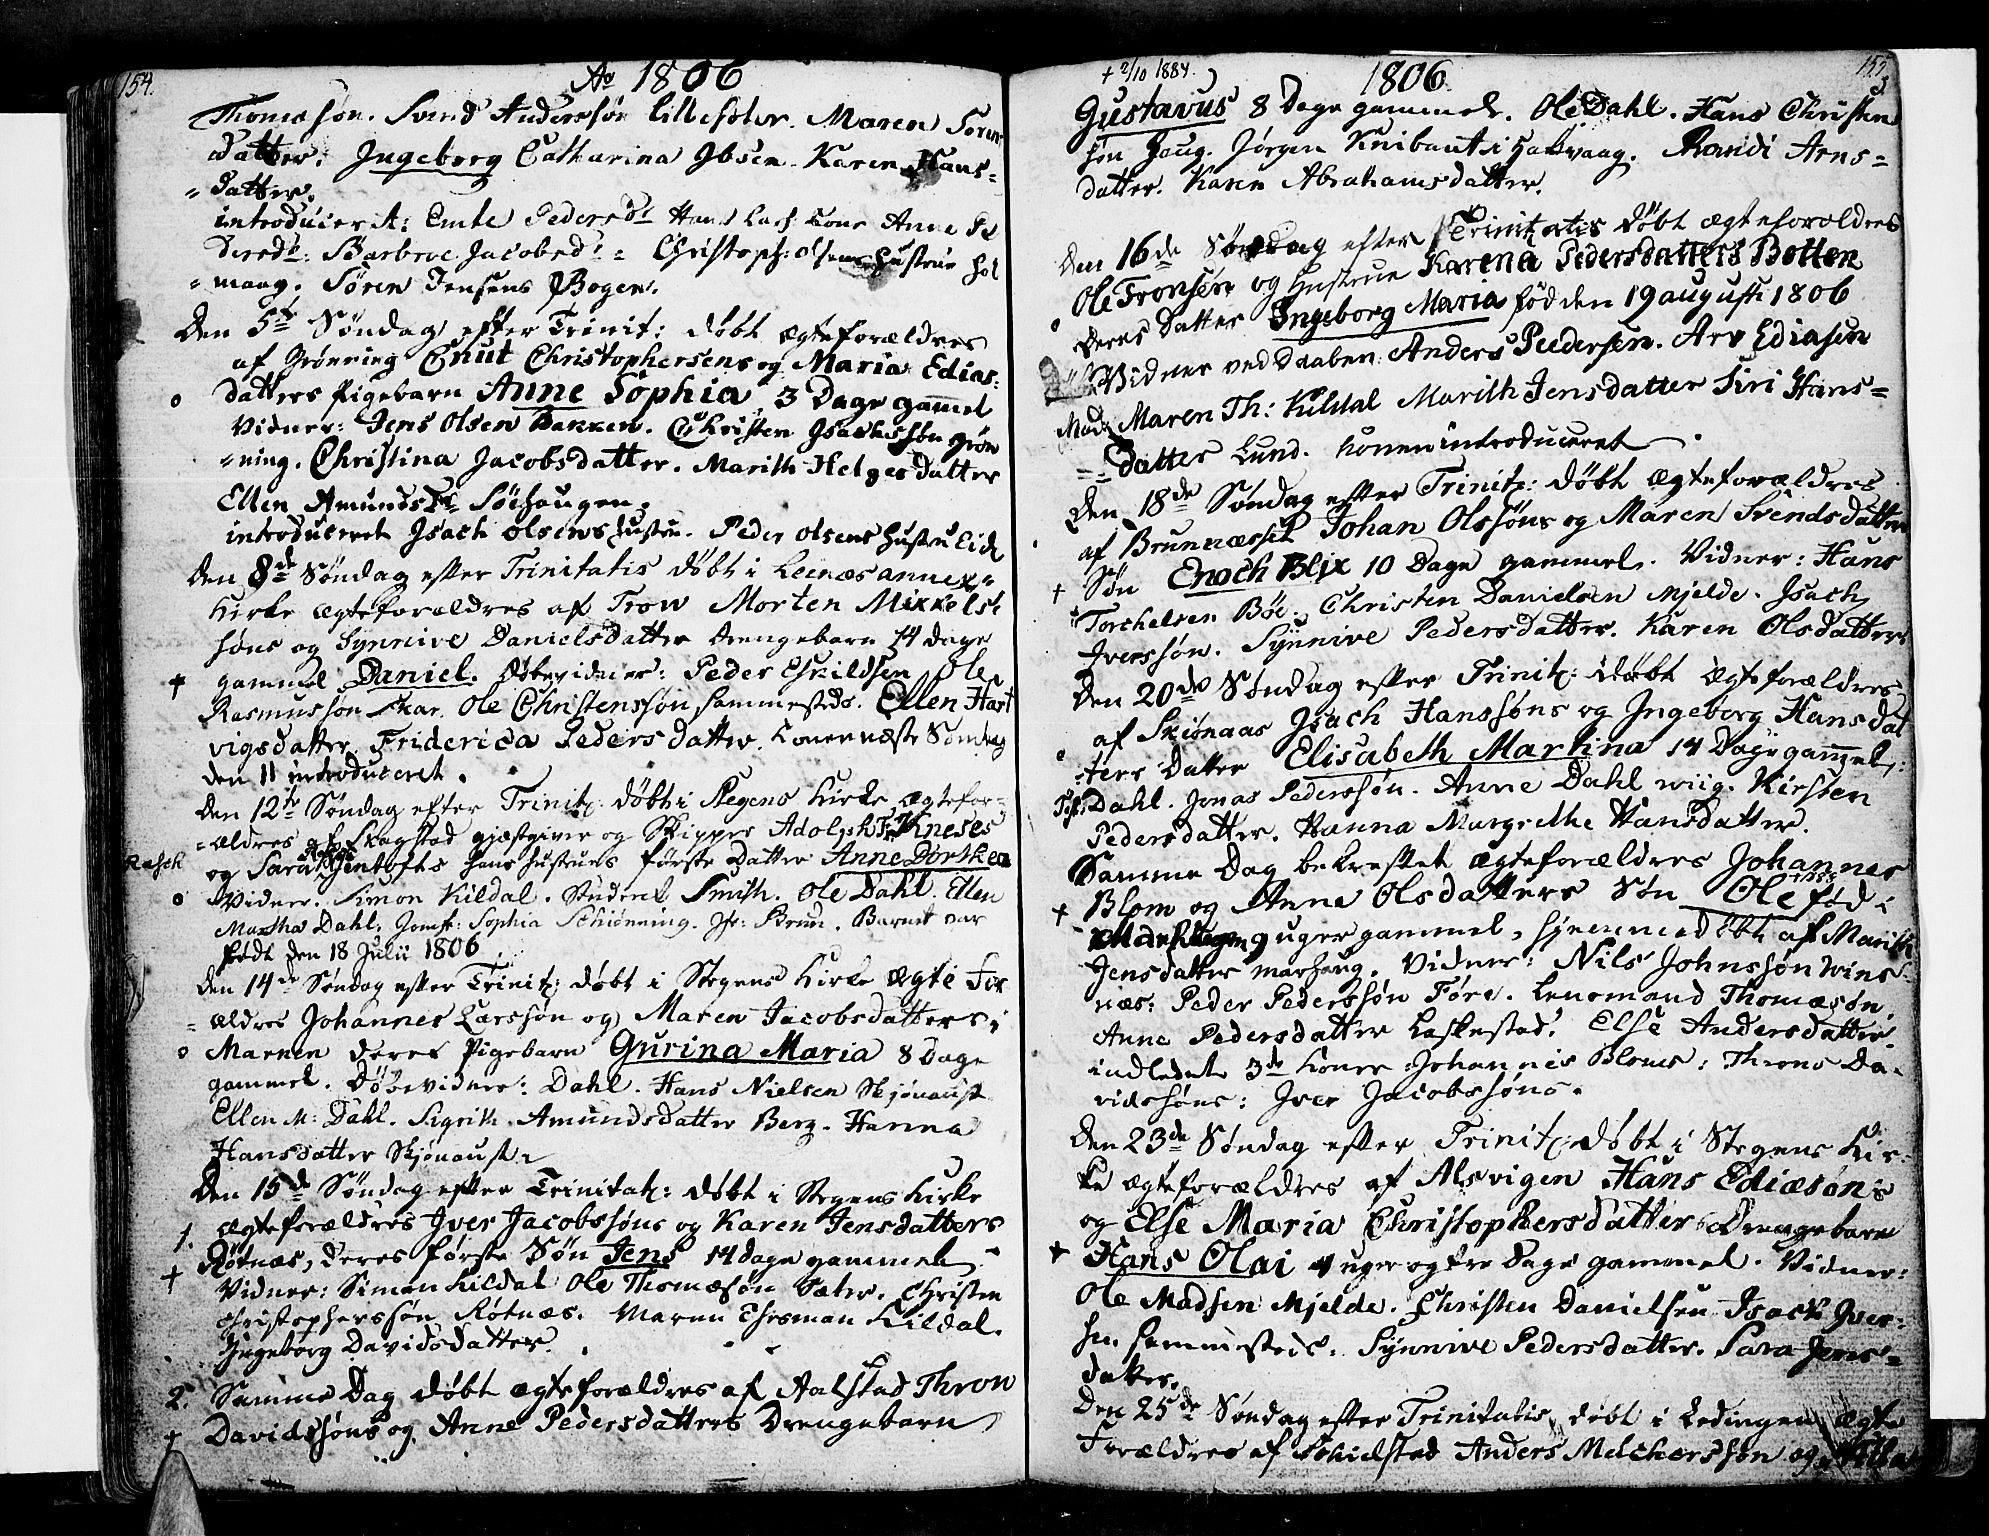 154.
Ao 1806
Thomesøn. Svend Anderssøn Maren Søren
datter. Ingeborg Catharina Ibsen. Karen Hans-
datter.
introducert: Peders Dr Hans Kone Anne Pe
dersdr: Jacobsdr = Christoph: Olsens Hustrue Hol
maag. Søren Jensens Bogen.
Den 5te Søndag efter Trinit: døbt ægteforældres
af Grønning Cnut Christophersens og Maria Edias-
o datters Pigebarn Anne Sophia 3 Dage gammel
Vidner: Jens Olsen Bakken. Christen Isachssøn Grøn
ning. Christina Jacobsdatter. Marith Helgesdatter
Ellen Amunds Dr Søehaugen.
introduceret Isach Olsens Hustru. Peder Olsens Hustru Eide
Den 8de Søndag efter Trinitatis døbt i Leenæs annex-
Kirke ægteforældres af Trow Morten Mikkels
søns og Synnive Danielsdatter Drengebarn 14 dage
+ gammel Daniel. Døbevidner: Peder Eskildsen Ole
Rasmussøn Skar. Ole Christenssøn sammesteds. Ellen Hart
vigsdatter. Friderica Pedersdatter. Konen næste Søndag
den 11 introduceret.
Den 12te Søndag efter Trinit: døbt i Stegens Kirke ægtefor-
ældres af Skagstad giæstgiver og Skipper Adolph Fr Knesés
Rasch
og Sara Gentofts hans hustrues første Datter Anne Dorthea
o Vidner. Simon Kildal. Student Smith. Ole Dahl. Ellen
Martha Dahl. Jomf: Sophia Schiønning. Jfr: Brun. Barnet var
født den 18 Julii 1806
Den 14de Søndag efter Trinit: døbt i Stegens Kirke ægte For
ældres Johannes Larssøn og Maren Jacobsdatters i
o Marnen deres Pigebarn Gurina Maria 8 Dage
gammel. Døbevidner: Dahl. Hans Nielsen Skjønaust
Ellen M: Dahl. Sigrith Amundsdatter Berg. Hanna
Hansdatter Skjønaust.
Den 15de Søndag efter Trinitat: døbt i Stegens Kirke
1. ægteforældres Iver Jacobssøns og Karen Jensdatters
+ Røtnæs, deres første Søn Jens 14 dage gammel.
Vidner: Simon Kildal Ole Thomæsøn Sæter. Christen
Christopherssøn Røtnæs. Maren Ehrsman Kildal.
Ingeborg Davidsdatter.
2. Samme Dag døbt ægteforældres af Aalstad Thron
+ Davidssøns og Anne Pedersdatters Drengebarn
+ 2/10 1884.
1806.
155
Gustavus 8 Dage gammel. Ole Dahl. Hans Christen
søn Joug. Jørgen Knibant i Hakvaag. Randi Arns-
datter. Karen Abrahamsdatter.
Den 16de Søndag efter Trinitatis døbt ægteforældres
Ole Tronsen og Hustrue Karena Pedersdatters Botten
o deres Datter Ingeborg Maria fød den 19 august 1806
Vidner ved Daaben: Anders Pedersen. Arv Ediasen
Mad: Maren Th: Kildal Marith Jensdatter Siri Hans-
datter Lund. Konen introduceret.
Den 18de Søndag efter Trinit: døbt ægteforældres
af Brunnæsset Johan Olssøns og Maren Svendsdatter
+ Søn Enoch Blix 10 Dage gammel. Vidner: Hans
Torchelsen Bøe. Christen Danielsen Mjelde. Isach
Iverssøn. Synnive Pedersdatter. Karen Olsdatter
Den 20de Søndag efter Trinit: døbt ægteforældres
af Skiønaas Isach Hanssøns og Ingeborg Hansdat
o ters Datter Elisabeth Martina 14 Dage gammel.
Dahl. Jonas Pederssøn. Anne Dahl wiig. Kirsten
Pedersdatter. Hanna Margrethe Hansdatter.
Samme Dag bekræftet ægteforældres Johannes
+ Blom og Anne Olsdatters Søn Ole fød i
9 uger gammel, hjemmedøbt af Marith
Jensdatter Marhaug. Vidner: Nils Johnssøn Wins-
næs: Peder Pederssøn Føre. Lensmand Thomæsøn.
Anne Pedersdatter Laskestad. Else Andersdatter.
indledet 3de Koner Johannis Bloms: Throns Da-
vidssøns: Iver Jacobssøns.
Den 23de Søndag efter Trinit: døbt i Stegens Kir-
ke ægteforældres af Alsvigen Hans Ediæsøns
og Else Maria Christophersdatters Drengebarn
+ Hans Olai 4 uger og tre Dage gammel. Vidner:
Ole Madsen Mjelde. Christen Danielsen Isach Iver-
sn. sammesteds. Synnive Pedersdatter. Sara Jens-
datter.
Den 25de Søndag efter Trinitatis døbt i Ledingen ægte
Forældres af Anders Melchorssøn og